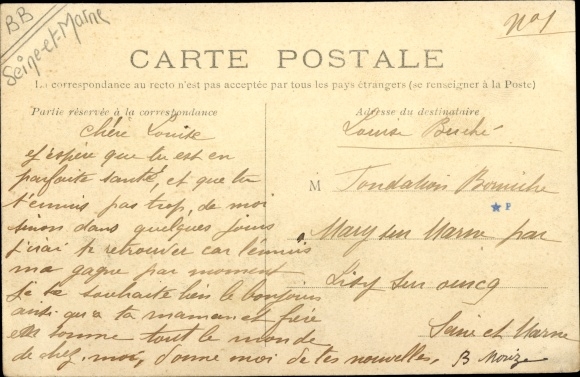 BB
Seine-et-Marne
No 1
CARTE POSTALE
La correspondance au recto n'est pas acceptée par tous les pays étrangers (se renseigner à la Poste)
Partie réservée à la correspondance
Chère Louise
j'espère que tu est en
parfaite santé, et que tu
t'ennuis pas trop, de moi
sinon dans quelques jours
j'irai te retrouver car l'ennuis
ma gagne par moment
je te souhaite bien le bonjour
ainsi qu'a ta maman et frère
comme tout le monde
de chez moi, donne moi de tes nouvelles,
Adresse du destinataire
Louise
M Fondation Borniche
P
Mary sur Marne par
Lizy sur ourcq
Seine et Marne
B